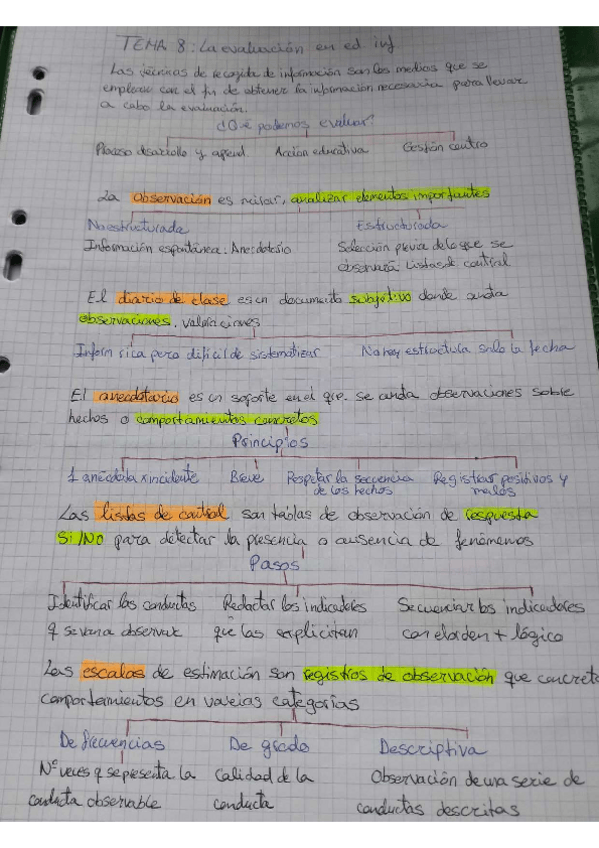 TEMA 8: La evaluación en ed inf
Las técnicas de recogida de información son los medios que se
emplean con el fin de obtener la información necesaria para llevar
a cabo la evaluación.
¿Qué podemos evaluar?
Proceso desarrollo y aprend. Acción educativa Gestión centro
La observación es mirar, analizar elementos importantes
No estructurada Estructurada
Información espontánea: Anecdotario Selección previa de lo que se
observará: Listas de control
El diario de clase es un documento subjetivo donde anota
observaciones, valoraciones
Inform rica pero difícil de sistematizar No hay estructura sólo la fecha
El anecdotario es un soporte en el que se anota observaciones sobre
hechos o comportamientos concretos
Principios
1 anécdota x incidente Breve Respetar la secuencia Registrar positivos y
de los hechos malos
Las listas de control son tablas de observación de respuesta
Si/NO para detectar la presencia o ausencia de fenómenos
Pasos
Identificar las conductas Redactar los indicadores Secuenciar los indicadores
q se van a observar que las explicitan con el orden + lógico
Las escalas de estimación son registros de observación que concreta
comportamientos en varias categorías
De frecuencias De grado Descriptiva
Nº veces q se presenta la Calidad de la Observación de una serie de
conducta observable conducta conductas descritas